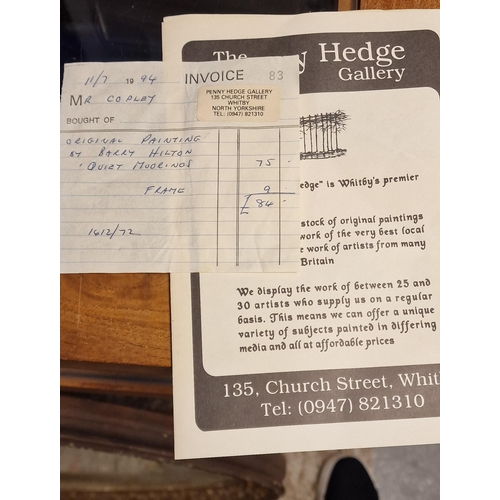 11/7 1994 INVOICE 83
MR COPLEY
BOUGHT OF
PENNY HEDGE GALLERY
135 CHURCH STREET
WHITBY
NORTH YORKSHIRE
TEL: (0947) 821310
ORIGINAL PAINTING
BY BARRY HILTON
'QUIET MOORINGS 75 -
FRAME 9
£84 -
1612/72
The
y Hedge
Gallery
edge" is Whitby's premier
stock of original paintings
work of the very best local
e work of artists from many
Britain
We display the work of between 25 and
30 artists who supply us on a regular
basis. This means we can offer a unique
variety of subjects painted in differing
media and all at affordable prices
135, Church Street, Whitb
Tel: (0947) 821310